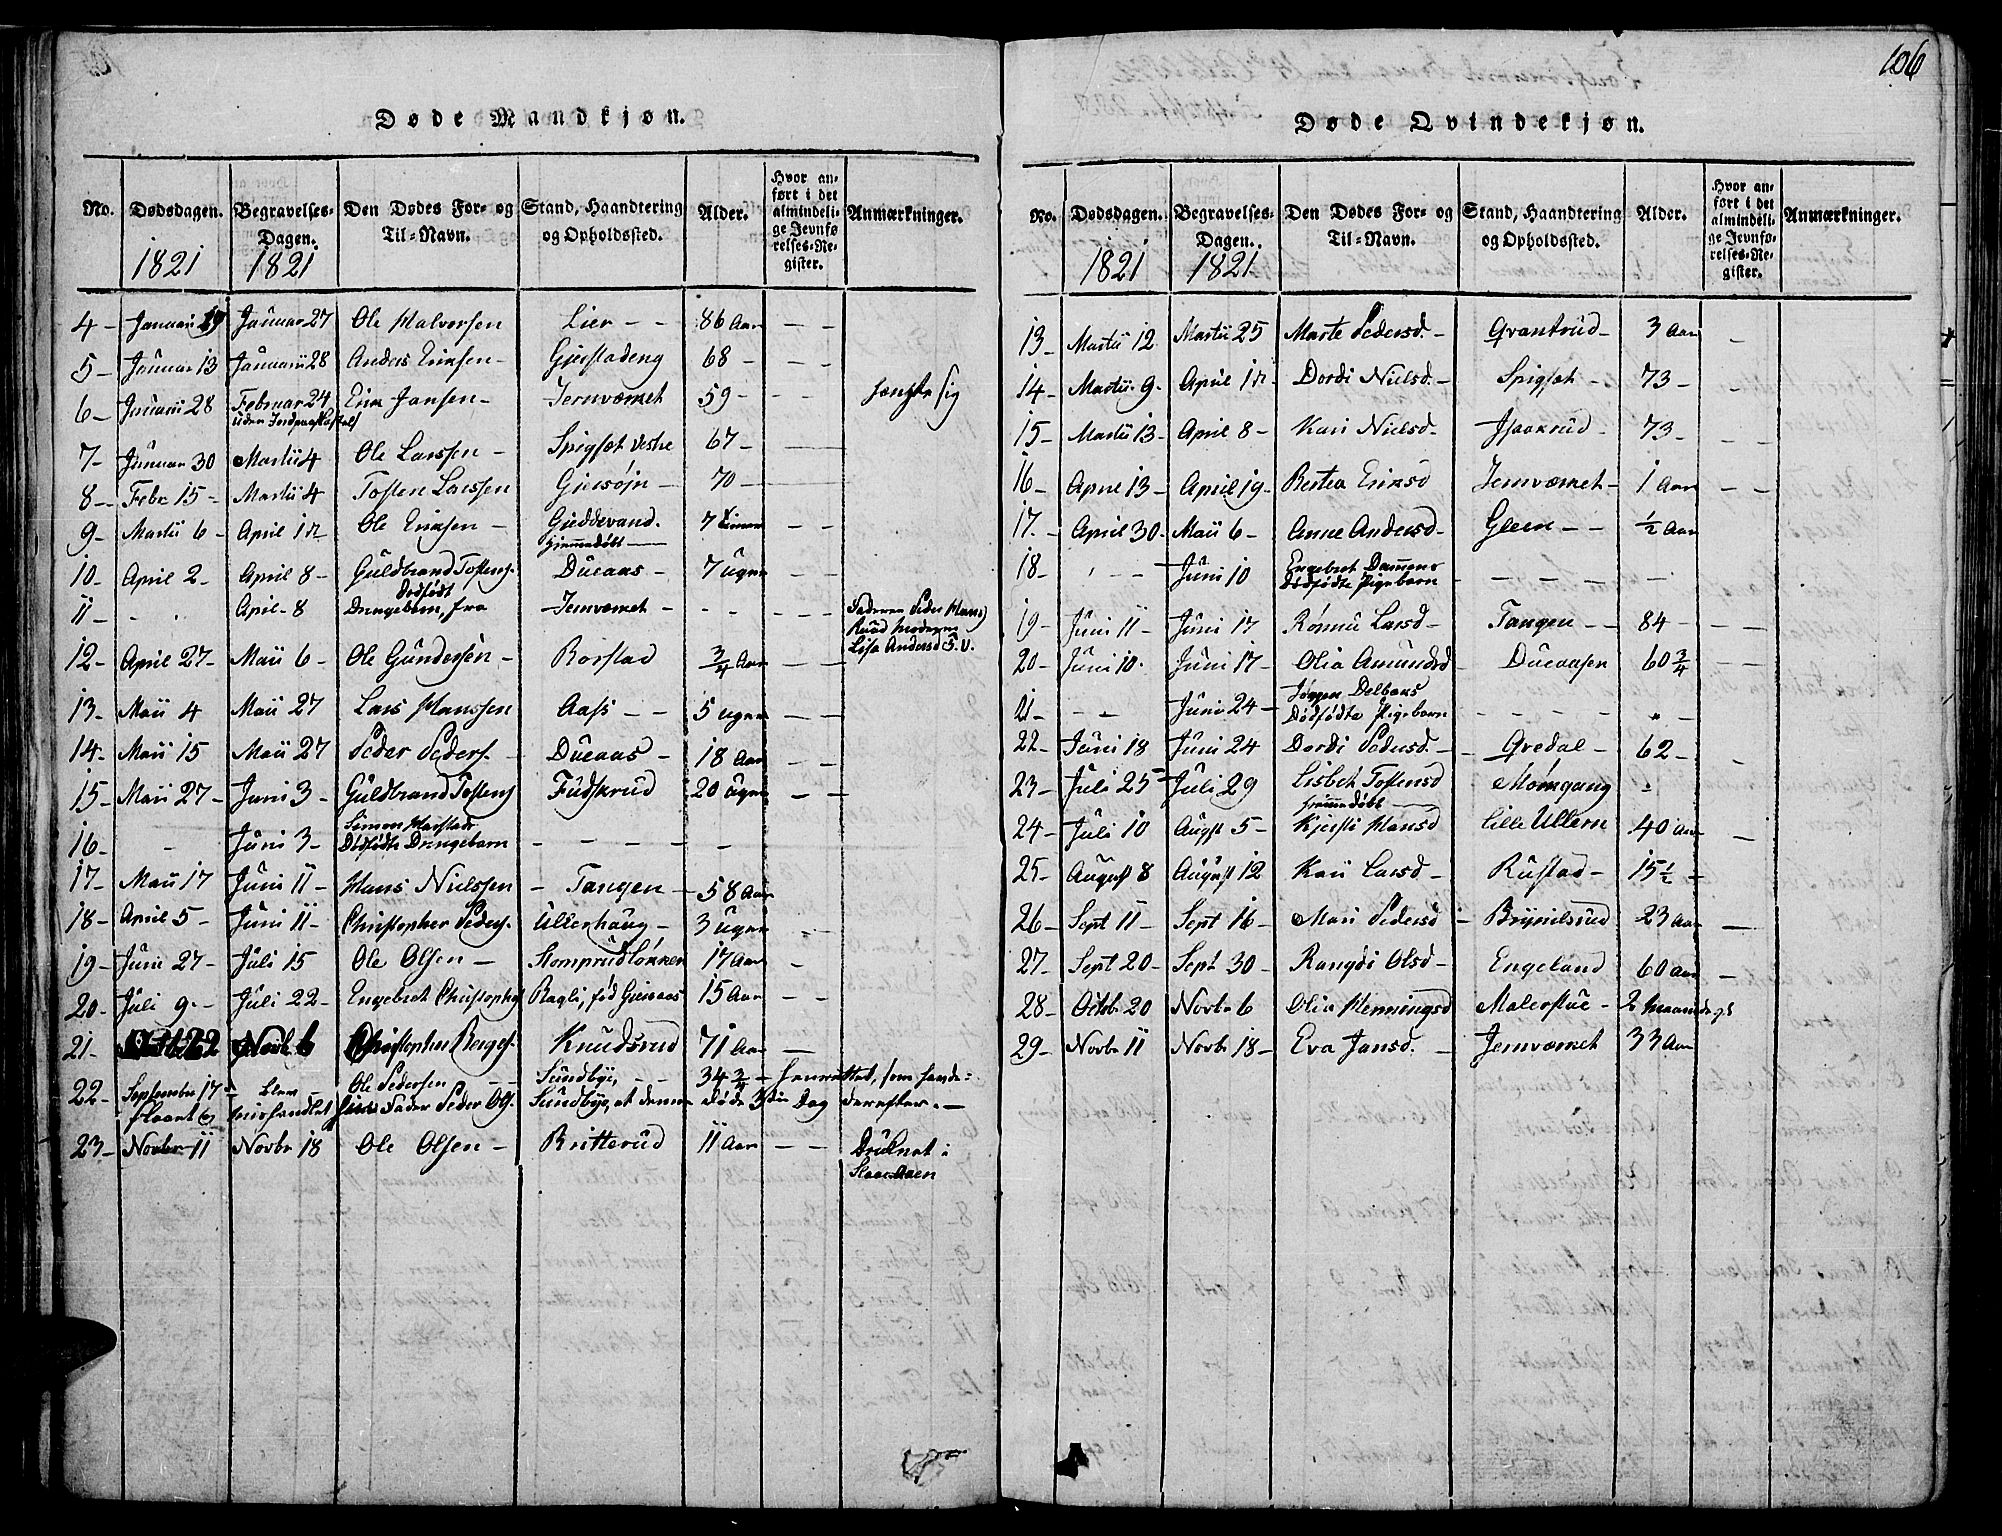 106
Døde Mandkjøn.
No. Dødsdagen. Begravelses-Dagen. Den Dødes For- og Til-Navn. Stand, Haandtering og Opholdssted. Alder. Hvor anført i det almindelige Jevnførelses-Register. Anmærkninger.
1821 1821
4 - Januarii 19 Januar 27 Ole Halvorsen Lier - - 86 Aar - -
5 - Januar 13 Januarii 28 Anders Eriksen - Gjerstadeng 68 - - -
6 - Januarii 28 Februar 24 Erik Jansen - Jernværket 59 - - - hængte sig
uden Jordpaakastelse
7 - Januar 30 Martii 4 Ole Larssen - Spigset vestre 67 -
8 - Febr 15 - Martii 4 Tosten Larssen Giersøjn - 70 -
9 - Martii 6 - April 1ste Ole Eriksen - Gieddevand. 7 Timer - -
hjemmedøbt
10 - April 2 - April 8 - Guldbrand Tostens. Dueaas - 7 uger - -
11 - - April 8 Dødfødt Drengebarn, fra Jernværket - - - - Faderen Peder Hans)
Ruud Moderen
Lisa Andersd
12 - April 27 - Maii 6 - Ole Gundersen - Rorstad 3/4 Aar - -
13 - Maii 4 Maii 27 Lars Hanssen Aass - - 5 uger - -
14 - Maii 15 Maii 27 Peder Peders. - Dueaas - 18 Aar - -
15 - Maii 27 - Juni 3 - Guldbrand Tostens Fudskrud 20 Uger - -
16 - - Juni 3 - Simon Harstads
Dødfødte Drengebarn - - - - -
17 - Maii 17 Juni 11 - Hans Nielssen - Tangen - 58 Aar
18 - April 5 - Juni 11 - Christopher Peders. Ullerhaug - 3 uger
19 - Juni 27 - Juli 15 Ole Olsen - Stomprudløkken 17 Aar -
20 - Juli 9. - Juli 22 - Engebret Christophs Ragli, fød 15 Aar - -
21 - Octb 22 Novb 6 Christopher Borges. Knudsrud 71 Aar -
22 - September 17 - blev Ole Pedersen - - Sundbye, - - 34 3/4 - henrettet, som havde
mishandlet sin Fader Peder Ols. Sundbye, at denne døde 3die Dag derefter. -
23 - Novbr 11 Novbr 18 Ole Olsen - Britterud 11 Aar - - Druknet i
Døde Qvindekjøn.
No. Dødsdagen. Begravelses-Dagen. Den Dødes For- og Til-Navn. Stand, Haandtering og Opholdssted. Alder. Hvor anført i det almindelige Jevnførelses-Register. Anmærkninger.
1821 1821
13 - Martii 12 Martii 25 Marte Pedersd. - Grantrud - 3 Aar -
14 - Martii 9 - April 1ste Dordi Nielsd. - Spigset - 73 - -
15 - Martii 13 - April 8 - Kari Nielsd - Isakrud - 73 - -
16 - April 13 - April 19 - Bertea Eriksd Jernværket - 1 Aar - -
17. - April 30 - Maii 6 - Anne Andersd - Gleen - - 1/2 Aar
18 - - - Juni 10 Engebret Dammens
Dødfødte Pigebarn - - - - -
19 - Juni 11 - Juni 17 Rønnu Larsd - Tangen - - 84 - - -
20 - Juni 10. Juni 17 - Olia Amundsd - Dueaasen 60 3/4 - -
21 - - - Juni 24 - Jørgen Delbaks
Dødfødte Pigebarn - - - - -
22 - Juni 18 Juni 24 Dordi Pedersd - - Gredal - 62 - -
23 - Juli 25 - Juli 29 Lisbeth Tostensd Mørngang -
hjemmedøbt
24 - Juli 10 Augst 5 - Kjersti Hansd Lille Ullern 40 Aar -
25 - August 8 August 12 Kari Larsd - Rustad - 15 1/2 -
26 - Sept 11 - Sept 16 - Mari Pedersd - Brynilsrud 23 Aar -
27 - Sept 20 - Sept 30 - Rangdi Olsd - Engeland 60 Aar -
28 - Octbr 20 Novbr 6 Olia Henningsd Malerstue - 2 Maaneder
29 - Novbr 11 Novbr 18 - Eva Jansd. - Jernværket 33 Aar